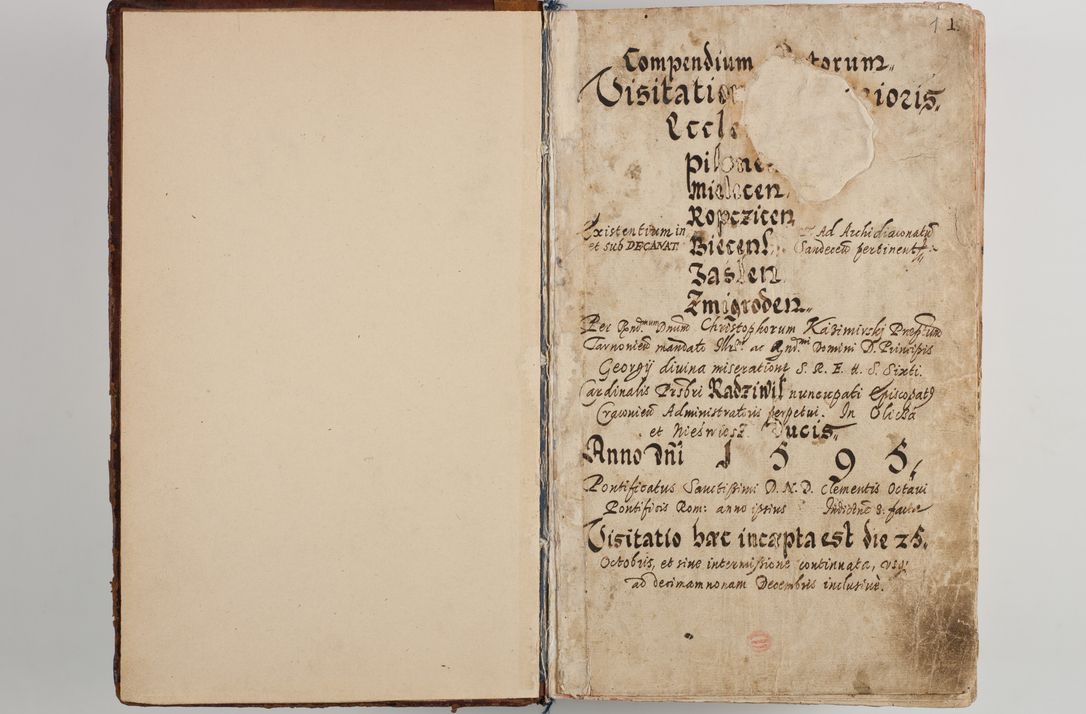 1 1.
Compendium torum
Visitatio rioris.
Eccle
Pilzne
Mielecen.
Ropczicen
Existentium in
et sub DECANAT
Biecens.
Ad Archidiaconatū
Sandecen̄ pertinent.
Jaslen
Zmigroden
Per Rndmum Dnum Christophorum Kazimirskj Prepᵗᵘᵐ
Tarnovien̄ mandato Illrmi ac Rndmi Domini D. Principis
Georgij divina miseratione S. R. E. tt. S. Sixti.
Cardinalis Prsbri Radziwil nuncupati Episcopatꝰ
Cracovien̄ Administratoris perpetui. In Olicka
et Nieswiesz. Ducis.
Anno Dñi 1 5 9 5,
Pontificatus Sanctissimi D. N. D. Clementis Octavi
Pontificis Rom: anno ipsius Indictne 8: facta
Visitatio hæc incæpta est die 25.
Octobris, et sine intermissione continuata, usq
ad decimam nonam Decembris inclusivè.